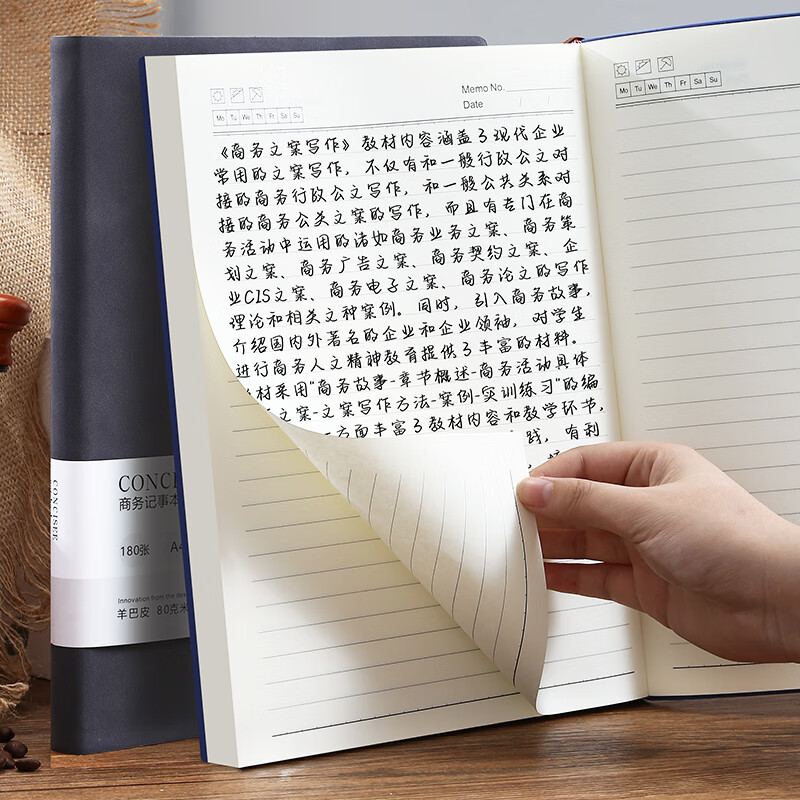 Memo No.
Date / /
Mo Tu We Th Fr Sa Su
《商务文案写作》教材内容涵盖了现代企业
常用的文案写作，不仅有和一般行政公文对
接的商务行政公文写作，和一般公共关系对
接的商务公关文案的写作，而且有专门在商
务活动中运用的诸如商务业务文案、商务策
划文案、商务广告文案、商务契约文案、企
业CIS文案、商务电子文案、商务论文的写作
理论和相关文种案例。同时，引入商务故事，
介绍国内外著名的企业和企业领袖，对学生
进行商务人文精神教育提供了丰富的材料。
材采用"商务故事-章节概述-商务活动具体
文案-文案写作方法-案例-实训练习"的编
方面丰富了教材内容和教学环节，
践，有利
Mo Tu We Th Fr Sa Su
CONCISEE
CONCI
商务记事本
180张 A4
Innovation from the de
羊巴皮 80克米